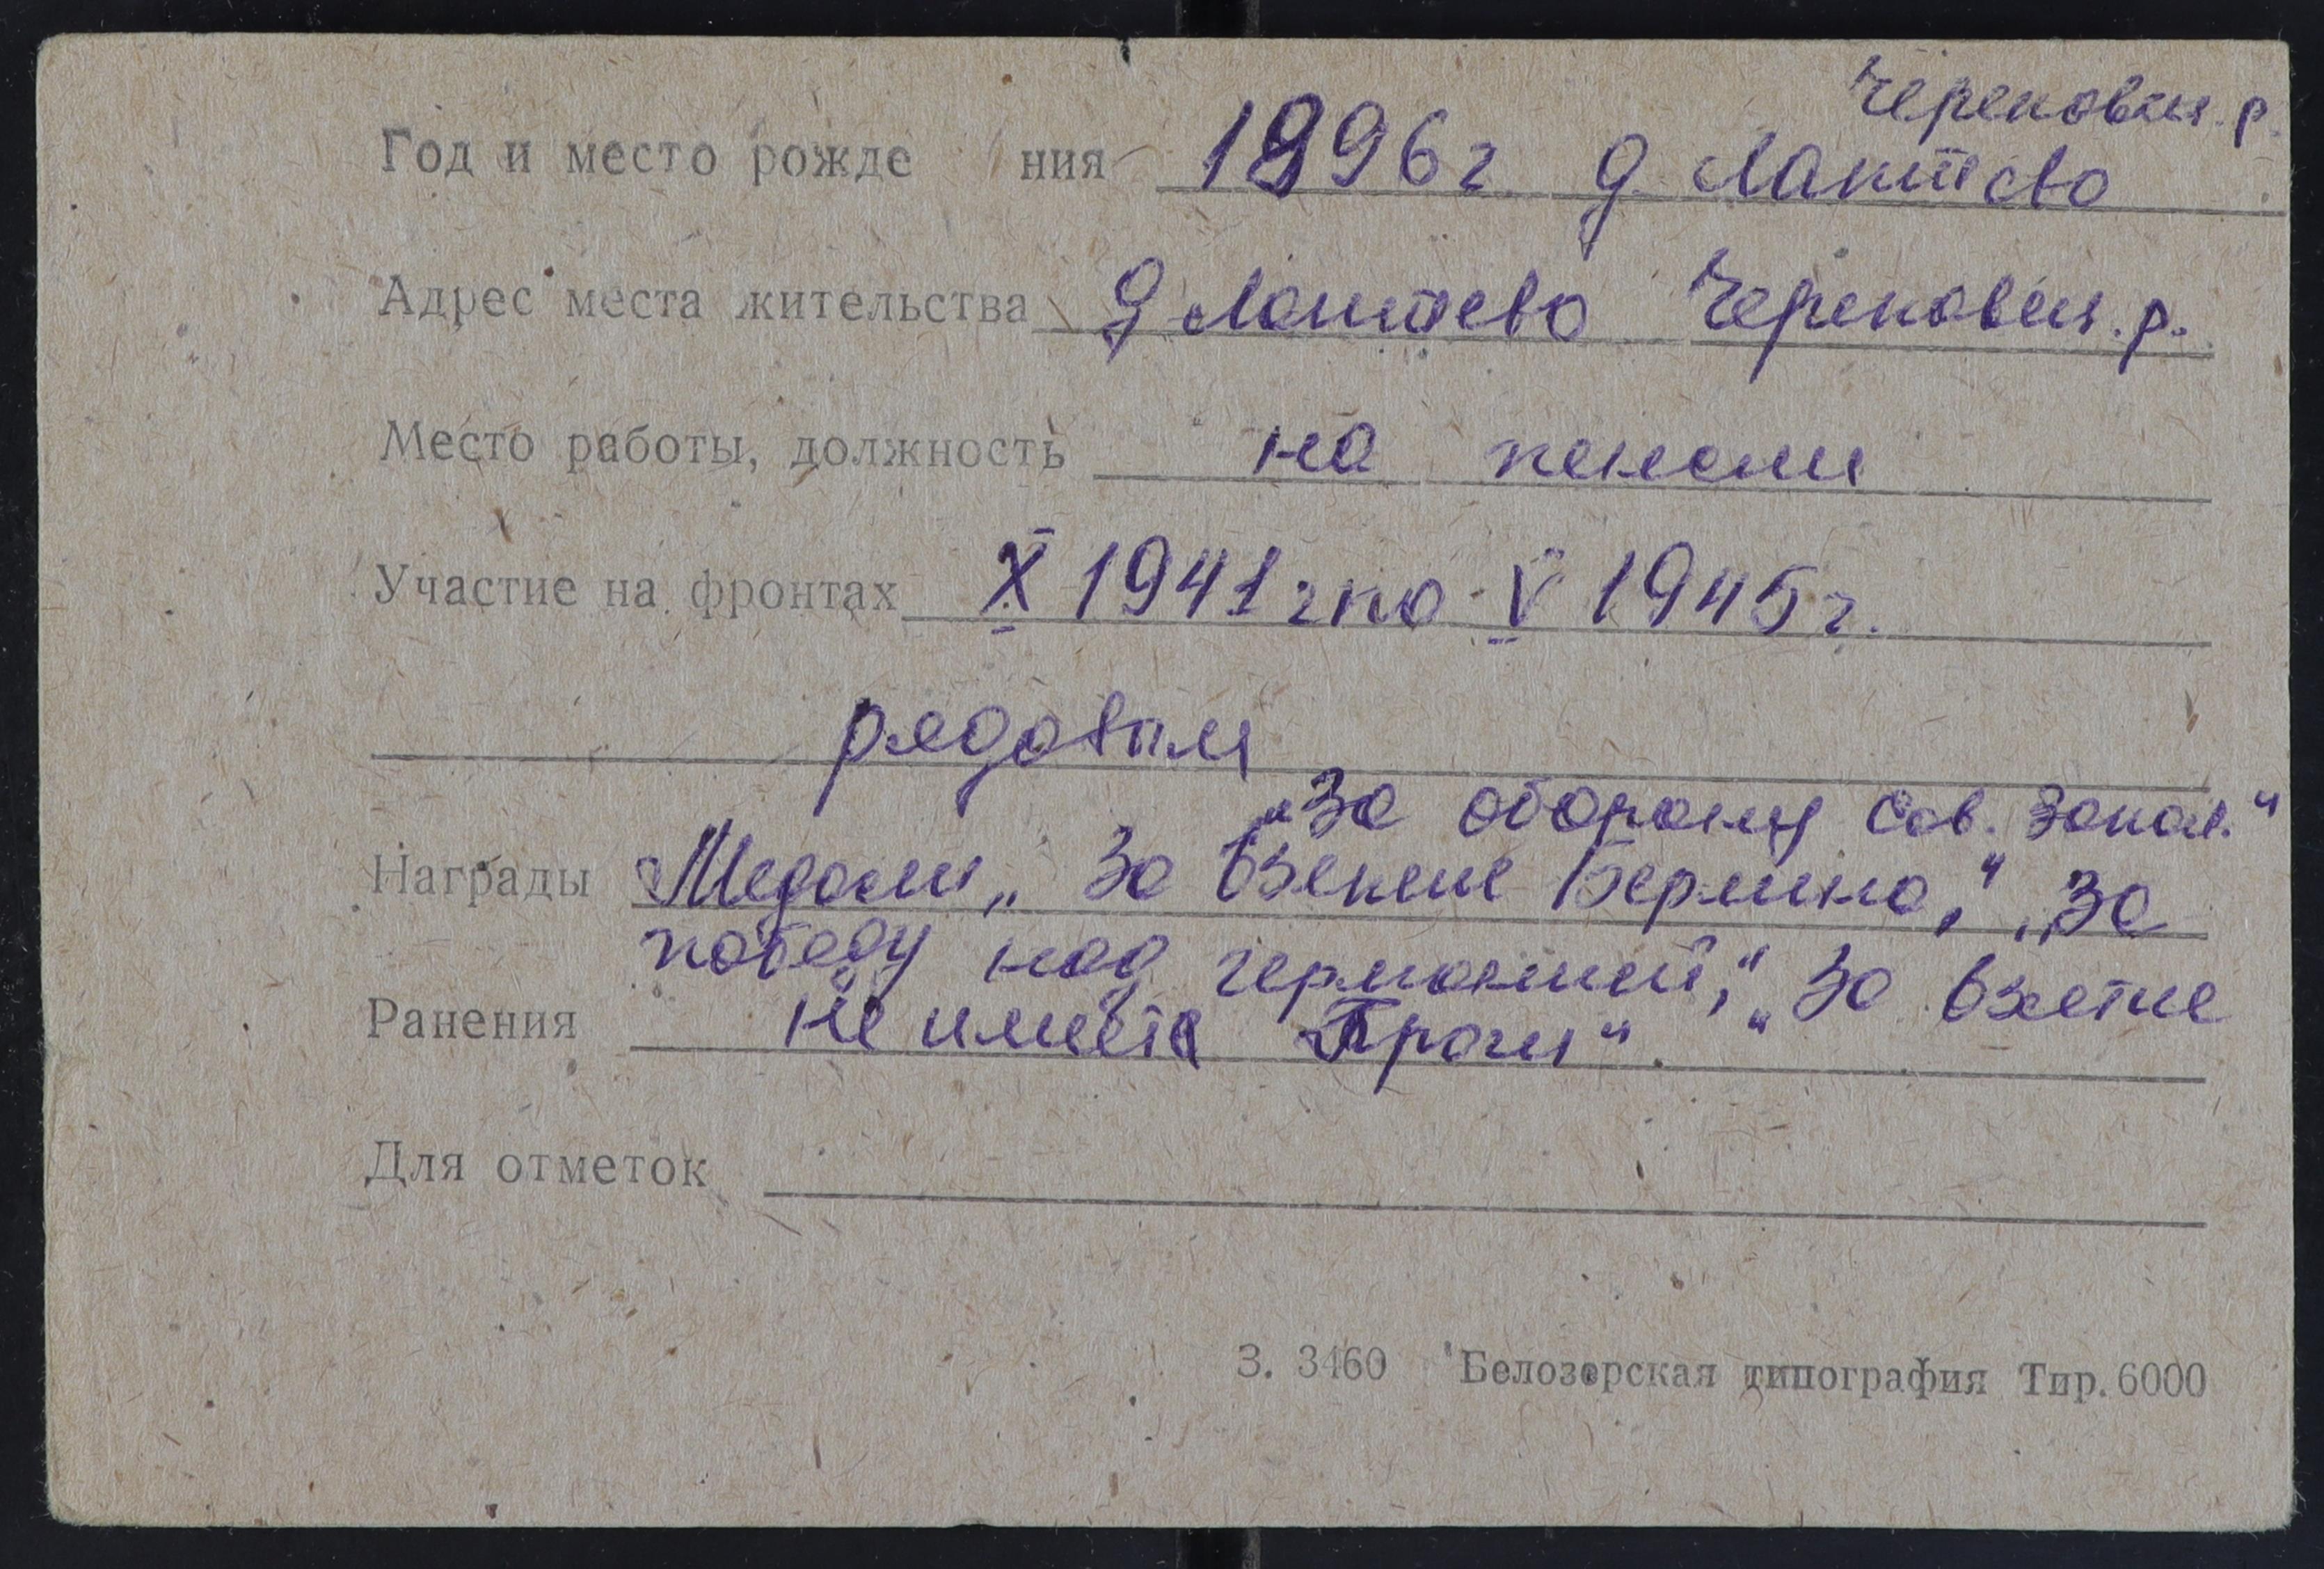 Череповец. р.
Год и место рождения 1896г д Лаптево
Адрес места жительства д Лаптево Череповец. р.
Место работы, должность на пенсии
Участие на фронтах X 1941г по V 1945г.
рядовым
„За оборону Сов. Запол."
Награды Медали „За взятие Берлина," „За
победу над германией," „За взятие
Ранения Не имеет Праги"
Для отметок
З. 3460 Белозерская типография Тир. 6000